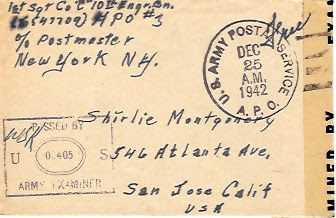 1st Sgt Co "C" 10th Engr. Bn.
(6541709) APO #3
c/o Postmaster
New York N.Y.
U.S. ARMY POSTAL SERVICE
DEC
25
A.M.
1942
A. P. O.
PASSED BY
U 0.405 S
ARMY EXAMINER
Shirlie Montgomery
546 Atlanta Ave.
San Jose Calif
USA